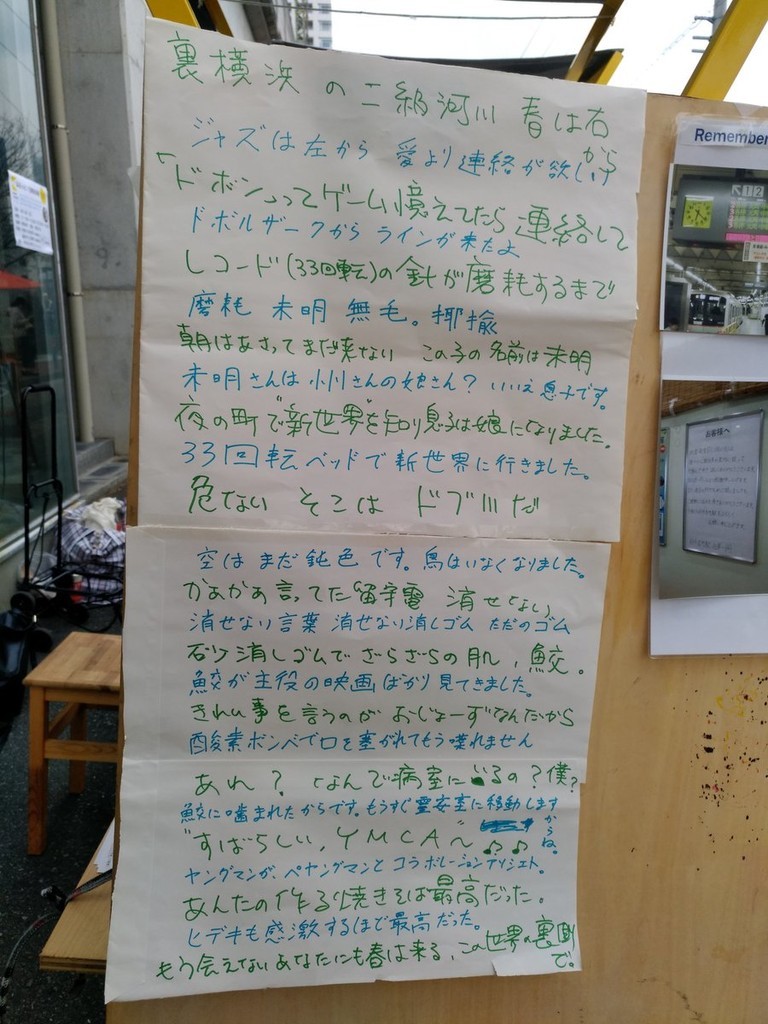 裏横浜 の二級河川 春は右から
ジャズは左から 愛より連絡が欲しい
「ドボン」ってゲーム憶えてたら連絡して
ドボルザークから ラインが来たよ
レコード(33回転)の針が磨耗するまで
磨耗 未明 無毛。揶揄
朝はあさってまだ来ない この子の名前は未明
未明さんは 小川さんの娘さん? いいえ息子です。
夜の町で"新世界"を知り息子は娘になりました。
33回転ベッドで新世界に行きました。
危ない そこは ドブ川だ
空は まだ鈍色です。鳥はいなくなりました。
かあかあ言ってた留守電 消せない
消せない言葉 消せない消しゴム ただのゴム
砂消しゴムでざらざらの肌、鮫。
鮫が主役の映画ばかり見てきました。
きれい事を言うのが おじょーずなんだから
酸素ボンベで口を塞がれてもう喋れません
あれ? なんで病室にいるの?僕?
鮫に噛まれたからです。もうすぐ霊安室に移動しますからね。
"すばらしい、YMCA〜 ♫♪
ヤングマンが、ペヤングマンとコラボレーションディシェト。
あんたの作る焼きそば最高だった。
ヒデキも感激するほど最高だった。
もう会えないあなたにも春は来る、この世界の裏側で。
Remember
12
お客様へ